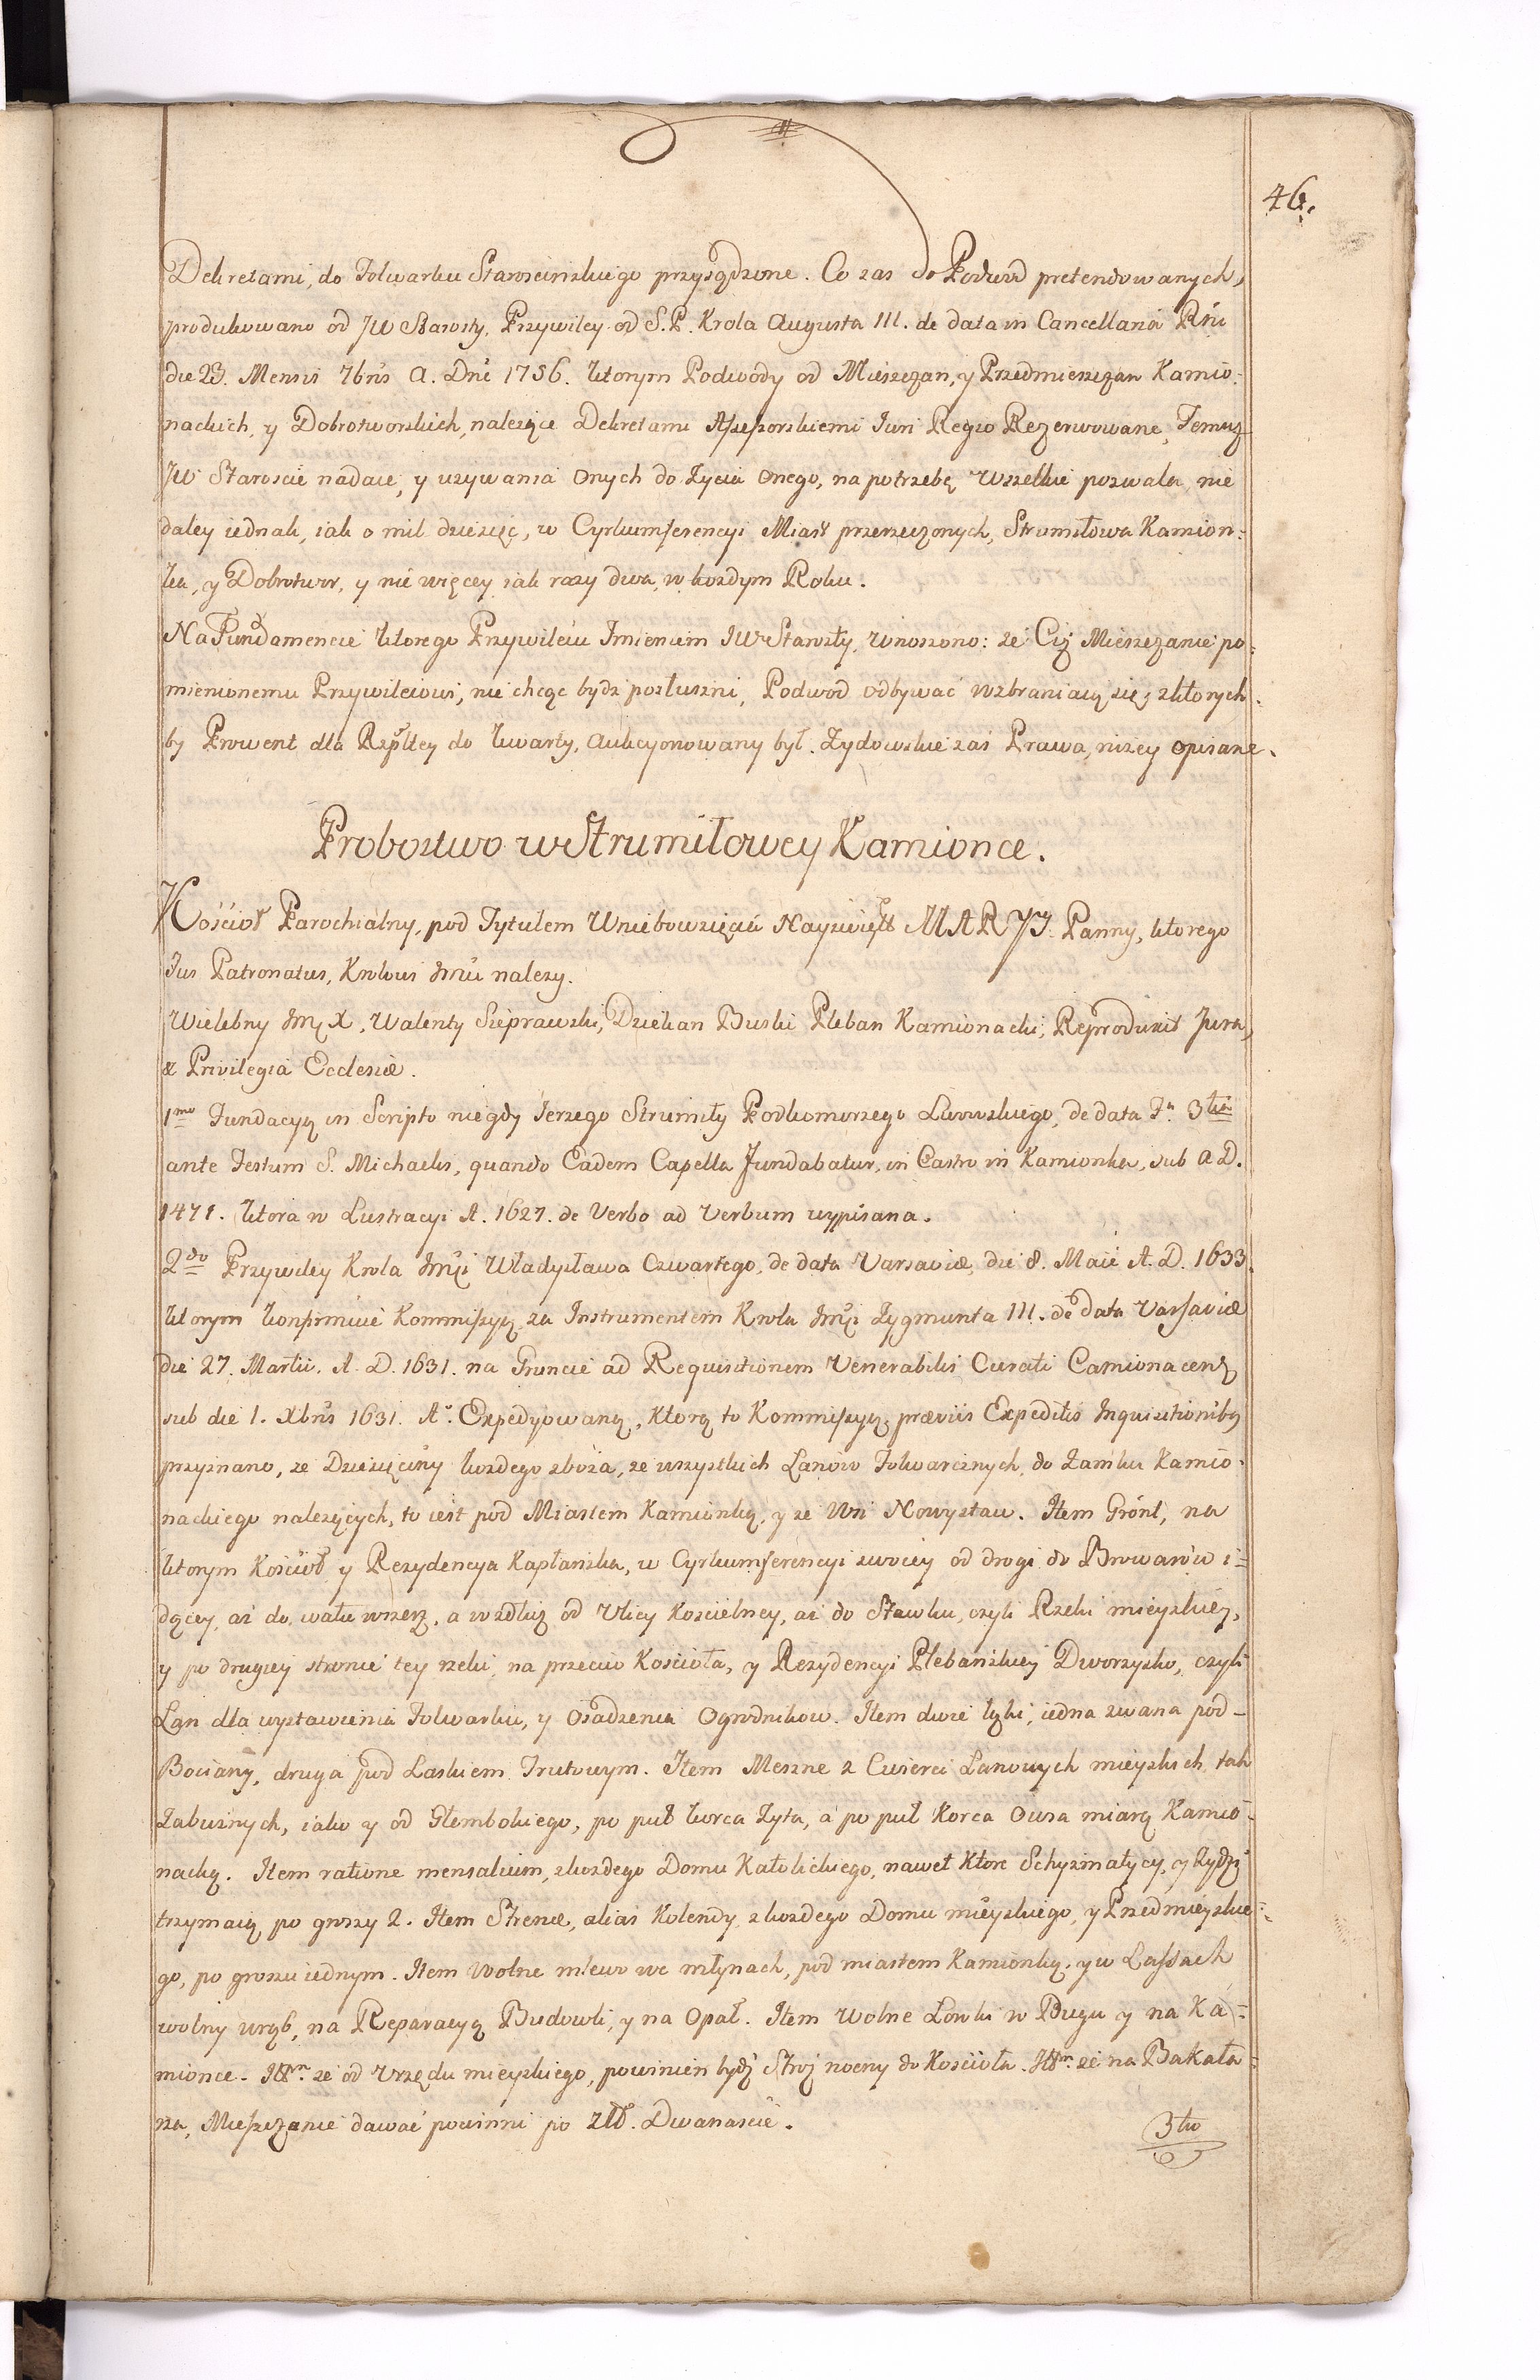 46.
Dekretami, do Folwarku Starościńskiego przysądzone. Co zas do Podwod pretendowanych,
produkowano od JW Starosty, Przywiley od S.P. Krola Augusta III. de data in Cancellaria Rńi
die 23. Mensis 7brıs A. Dnı 1756. ktorym Podwody od Mieszczan, y Przedmieszczan Kamio:
nackich, y Dobrotworskich, nalezące Dekretami Assessorskiemi Juri Regio Rezerwowane, Temuz
JW Staroscie nadaie, y uzywania onych do Zycia onego, na potrzebę wszelkie pozwala, nie
daley iednak, iak o mil dziesięc, w Cyrkumferencyi Miast przerzeczonych, Strumiłowa Kamion:
ka, y Dobrotwor, y nie więcey iak razy dwa, w kozdym Roku.
Na Fundamencie ktorego Przywileiu Imieniem JW Starosty, wnoszono: ze Ciz Mieszczanie po:
mienionemu Przywileiowi, nie chcąc bydz posłuszni, Podwod odbywać wzbraniaią się, z ktorych
by Prowent dla Rzpltey do kwarty, aukcyonowany był. Zydowskie zas Prawa, nizey opisane.
Probostwo w Strumiłowey Kamionce.
Kościoł Parochialny, pod Tytułem Wniebowzięcia Nayświęt MARYI Panny, ktorego
Jus Patronatus, Krolowi Jmci nalezy.
Wielebny Jmę X. Walenty Sieprawski, Dziekan Buski Pleban Kamionacki, Reproduxit Jura,
& Privilegia Ecclesiæ.
1mo Fundacyą in Scripto niegdy Jerzego Strumiły Podkomorzego Lwowskiego, de data Fa 3tia
ante Festum S. Michaelis, quando Eadem Capella Fundabatur, in Castro in Kamionka, sub A D.
1471. ktora w Lustracyi A. 1627. de Verbo ad Verbum wypisana.
2do Przywiley Krola Jmci Władysława Czwartego, de data Varsaviæ, die 8. Maii A. D. 1633.
ktorym konfirmuie Kommissyą za Instrumentem Krola Jmci Zygmunta III. de data Varsaviæ
die 27. Martii. A. D. 1631. na Gruncie ad Requisitionem Venerabilis Curati Camionacens
sub die 1. Xbrıs 1631. Ao. Expedyowaną, ktorą to Kommissyą, præviis Expeditis Inquisitionibq
przyznano, ze Dziesięciny kozdego zboza, ze wszystkich Lanow Folwarcznych, do Zamku Kamio:
nackiego nalezących, to iest pod Miastem Kamionką, y ze Wsi Nowystaw. Item Grónt, na
ktorym Kościoł y Rezydencya Kapłańska, w Cyrkumferencyi swoiey od drogi do Browarów i:
dącey, az do wału wszerz, a wzdłuz od Ulicy Kościelney, az do Stawku, czyli Rzeki mieyskiey,
y po drugiey stronie tey rzeki, na przeciw Kościoła, y Rezydencyi Plebańskiey Dworzysko, czyli
Łan dla wystawienia Folwarku, y Osadzenia Ogrodnikow. Item dwie łąki, iedna zwana pod-
Bociany, druga pod Laskiem Trutowym. Item Meszne z Cwierci Lanowych mieyskich tak
Zabuznych, iako y od Glembokiego, po puł korca Zyta, a po puł korca Owsa miarą Kamio:
nacką. Item ratione mensalium, z kozdego Domu Katolickiego, nawet ktore Schyzmatycy, y Zydzi
trzymaią po groszy 2. Item Strenæ, alias Kolendy z kozdego Domu mieyskiego, y Przedmieyskie:
go, po groszu iednym. Item wolne mlewo we młynach, pod miastem Kamionką, y w Lassach
wolny wrąb, na Reparacyą Budowli, y na Opał. Item Wolne Łowki w Bugu y na Ka:
mionce. Ittm. ze od Urzędu mieyskiego, powinien bydz Stroz nocny do Kościoła. Ittm. ze na Bakała:
rza, Mieszczanie dawać powinni po złł. Dwanaście.
3tio